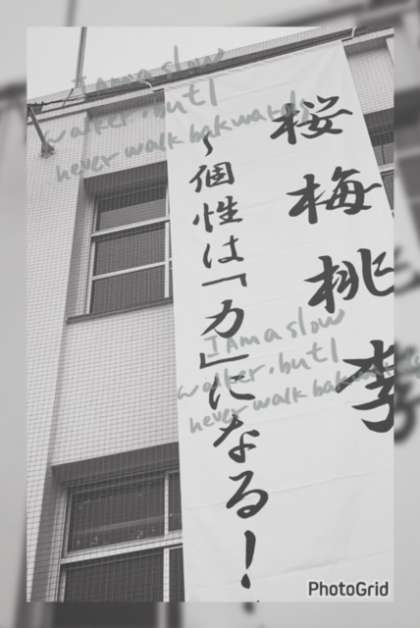 桜梅桃李
～個性は「力」になる！
I Am a slow
walker, but I
never walk bakwards
I Am a slow
walker, but I
never walk bakwards
PhotoGrid